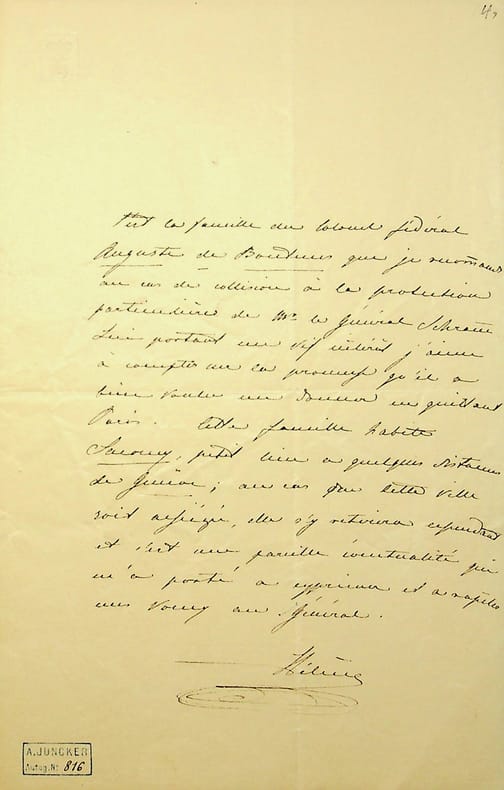 4,
C'est la famille du Colonel fédéral
Auguste de Bontems que je recommande
au cas de collision à la protection
particulière de Mr. le Général Schramm
Lui portant un vif intérêt j'aime
à compter sur la promesse qu'il a
bien voulu me donner en quittant
Paris. Cette famille habite
Saconey, petit lieu a quelques distances
de Genève; au cas que cette ville
soit assiégée, elle s'y retirera cependant
et c'est une pareille éventualité qui
m'a porté a exprimer et a rappeler
mes voeux au Général.
Hélène
A. JUNCKER
Autog. Nr. 816